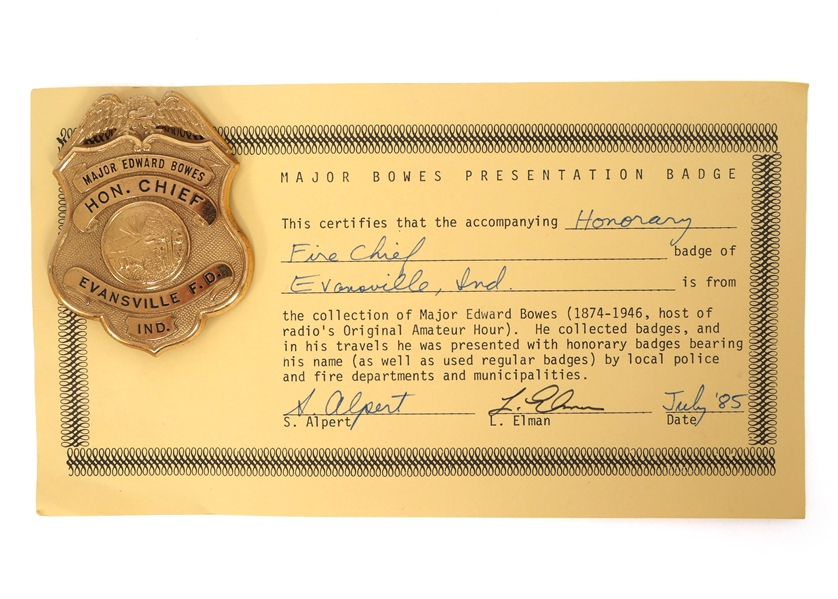 MAJOR EDWARD BOWES
HON. CHIEF
EVANSVILLE F.D.
IND.
MAJOR BOWES PRESENTATION BADGE
This certifies that the accompanying Honorary
Fire Chief badge of
Evansville, Ind. is from
the collection of Major Edward Bowes (1874-1946, host of
radio's Original Amateur Hour). He collected badges, and
in his travels he was presented with honorary badges bearing
his name (as well as used regular badges) by local police
and fire departments and municipalities.
S. Alpert L. Elman July '85
S. Alpert L. Elman Date